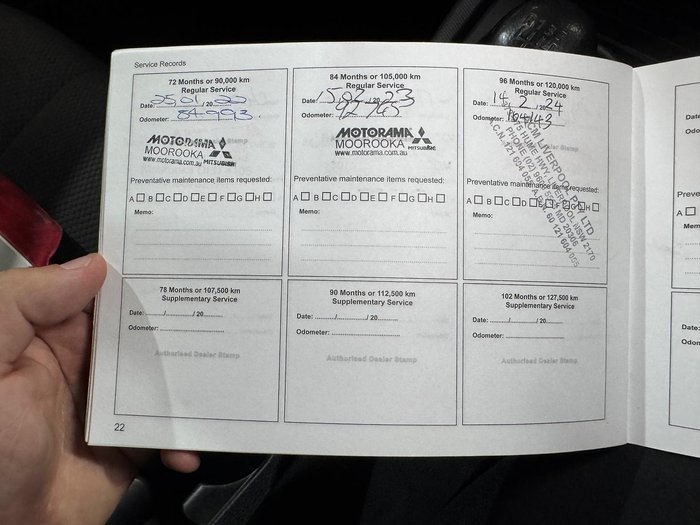 Service Records
72 Months or 90,000 km
Regular Service
Date: 25/01/2022
Odometer: 84993.
MOTORAMA
MOOROOKA
MITSUBISHI
www.motorama.com.au
Preventative maintenance items requested:
A B C D E F G H
Memo:
84 Months or 105,000 km
Regular Service
Date: 15/02/2023
Odometer: 92765
MOTORAMA
MOOROOKA
MITSUBISHI
www.motorama.com.au
Preventative maintenance items requested:
A B C D E F G H
Memo:
96 Months or 120,000 km
Regular Service
Date: 14/2/2024
Odometer: 104143
LIVERPOOL PTY LTD
HUME HWY, LIVERPOOL NSW 2170
PHONE (02)
MD 20306
A.C.N. 121 604 055 A.B.N. 60 121 604 055
Preventative maintenance items requested:
A B C D E F G H
Memo:
78 Months or 107,500 km
Supplementary Service
Date: ......../......../ 20..........
Odometer: ................................
Authorised Dealer Stamp
90 Months or 112,500 km
Supplementary Service
Date: ......../......../ 20..........
Odometer: ................................
Authorised Dealer Stamp
102 Months or 127,500 km
Supplementary Service
Date: ......../......../ 20..........
Odometer: ................................
Authorised Dealer Stamp
22